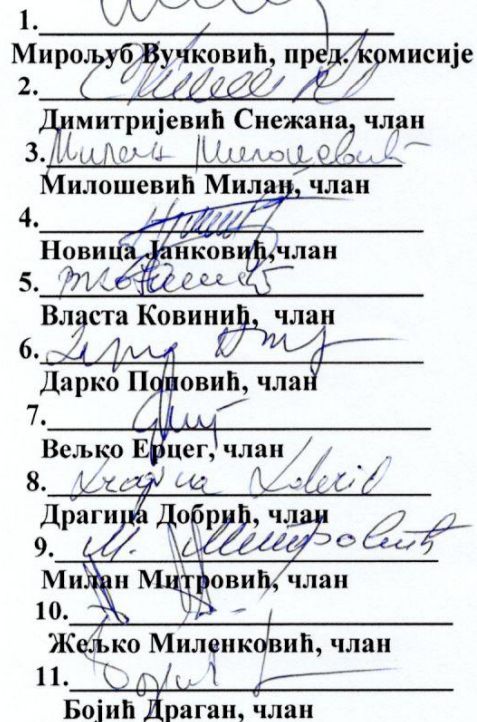 1.
Мирољуб Вучковић, пред. комисије
2.
Димитријевић Снежана, члан
3. Милан Милошевић
Милошевић Милан, члан
4.
Новица Јанковић,члан
5.
Власта Ковинић, члан
6.
Дарко Поповић, члан
7.
Вељко Ерцег, члан
8.
Драгица Добрић, члан
9. М. Митровић
Милан Митровић, члан
10.
Жељко Миленковић, члан
11.
Бојић Драган, члан